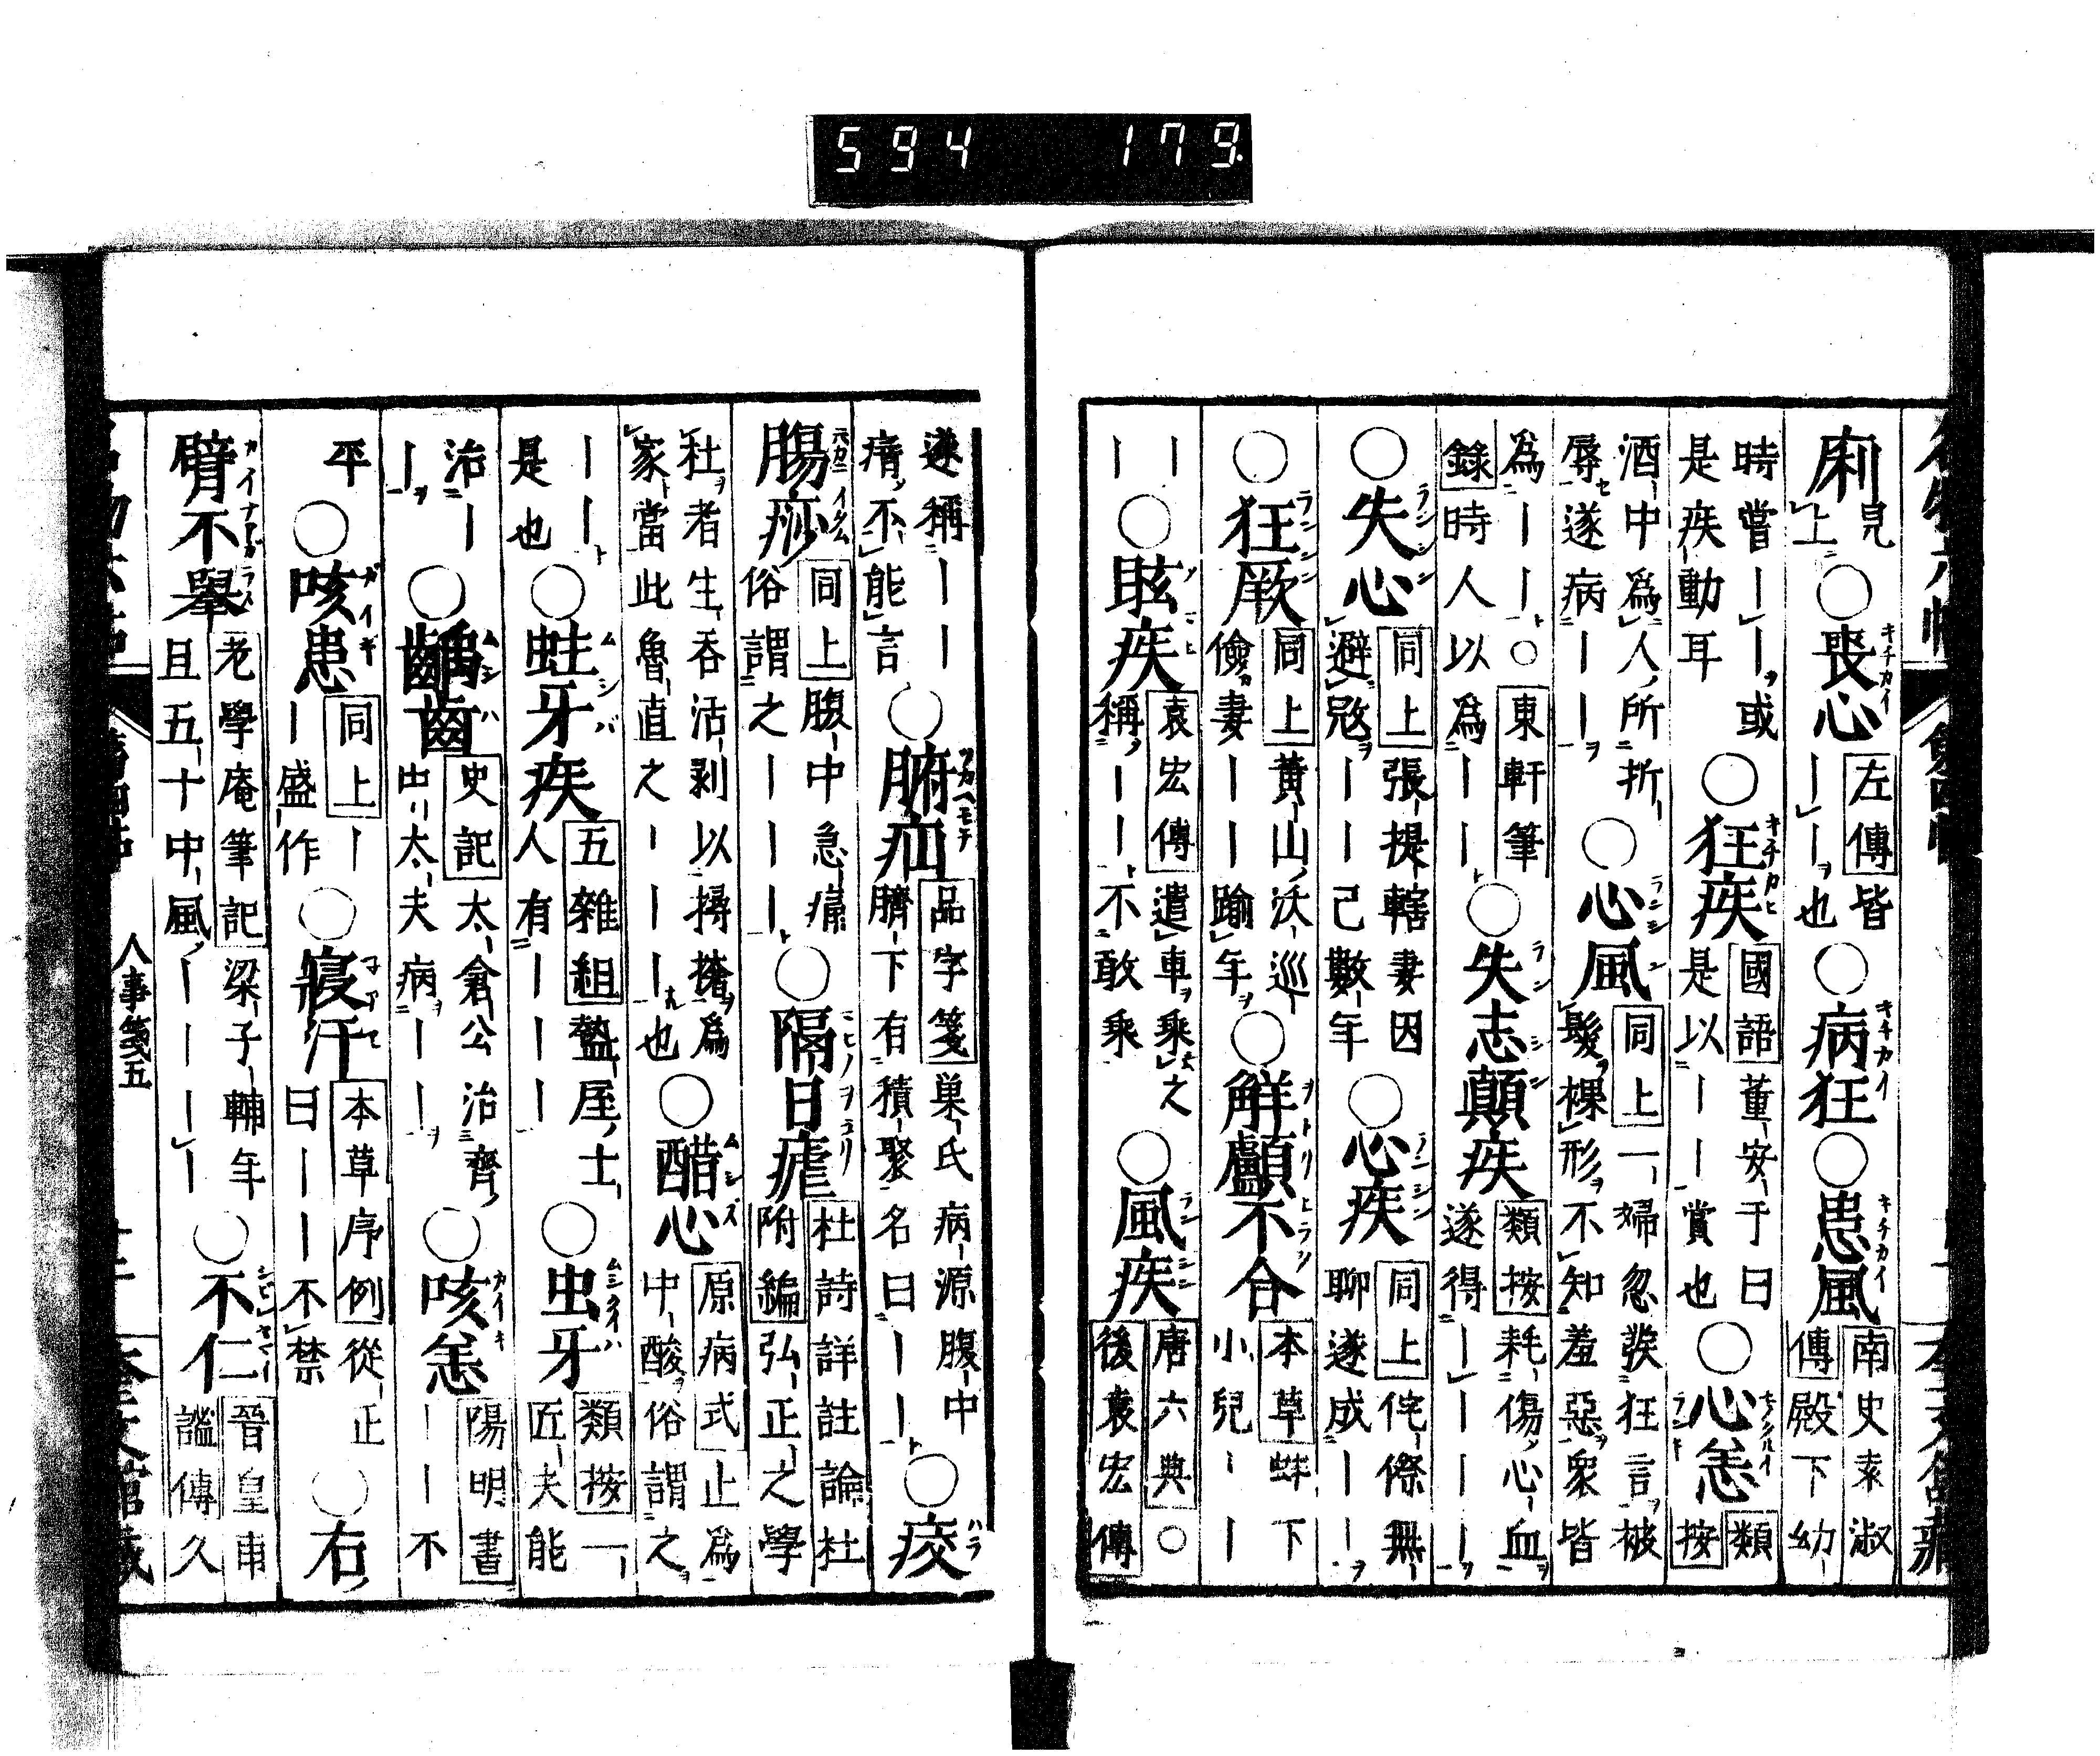 594 179
㾐見上○喪心左傳皆｜｜也○病狂○患風南史袁淑傳殿下幼
時嘗｜｜或是疾動耳○狂疾國語董安于曰是以｜｜賞也○心恙類按
酒中爲人所折辱遂病｜｜○心風同上一婦忽裝狂言被髮裸形不知羞惡衆皆
爲｜｜○東軒筆錄時人以爲｜｜○失志顚疾類按耗傷心血遂得｜｜｜｜
○失心同上張提轄妻因避寇｜｜已數年○心疾同上侘傺無聊遂成｜｜
○狂厥同上黄山沃巡儉妻｜｜踰年○解顱不合本草蚌下小兒｜｜
｜｜○眩疾袁宏傳遣車乘之稱｜｜不敢乘○風疾唐六典○後袁宏傳
遂稱｜｜瘖不能言○腑疝品字箋巢氏病源腹中臍下有積聚名曰｜｜○㽱
腸痧同上腹中急痛俗謂之｜｜｜○隔日瘧杜詩詳註論杜附編弘正之學
杜者生吞活剥以撏撦爲家當此魯直之｜｜｜｜也○醋心原病式止爲中酸俗謂之
｜｜是也○蛀牙疾五雜組蟄屋士人有｜｜｜○虫牙類按一匠夫能
治｜｜○齲齒史記太倉公治齊中太夫病｜｜○咳恙陽明書｜｜不
平○咳患同上｜｜盛作○寢汗本草序例從正曰｜｜不禁○右
臂不舉老學庵筆記梁子輔年且五十中風｜｜｜｜○不仁晉皇甫謐傳久
人事箋五